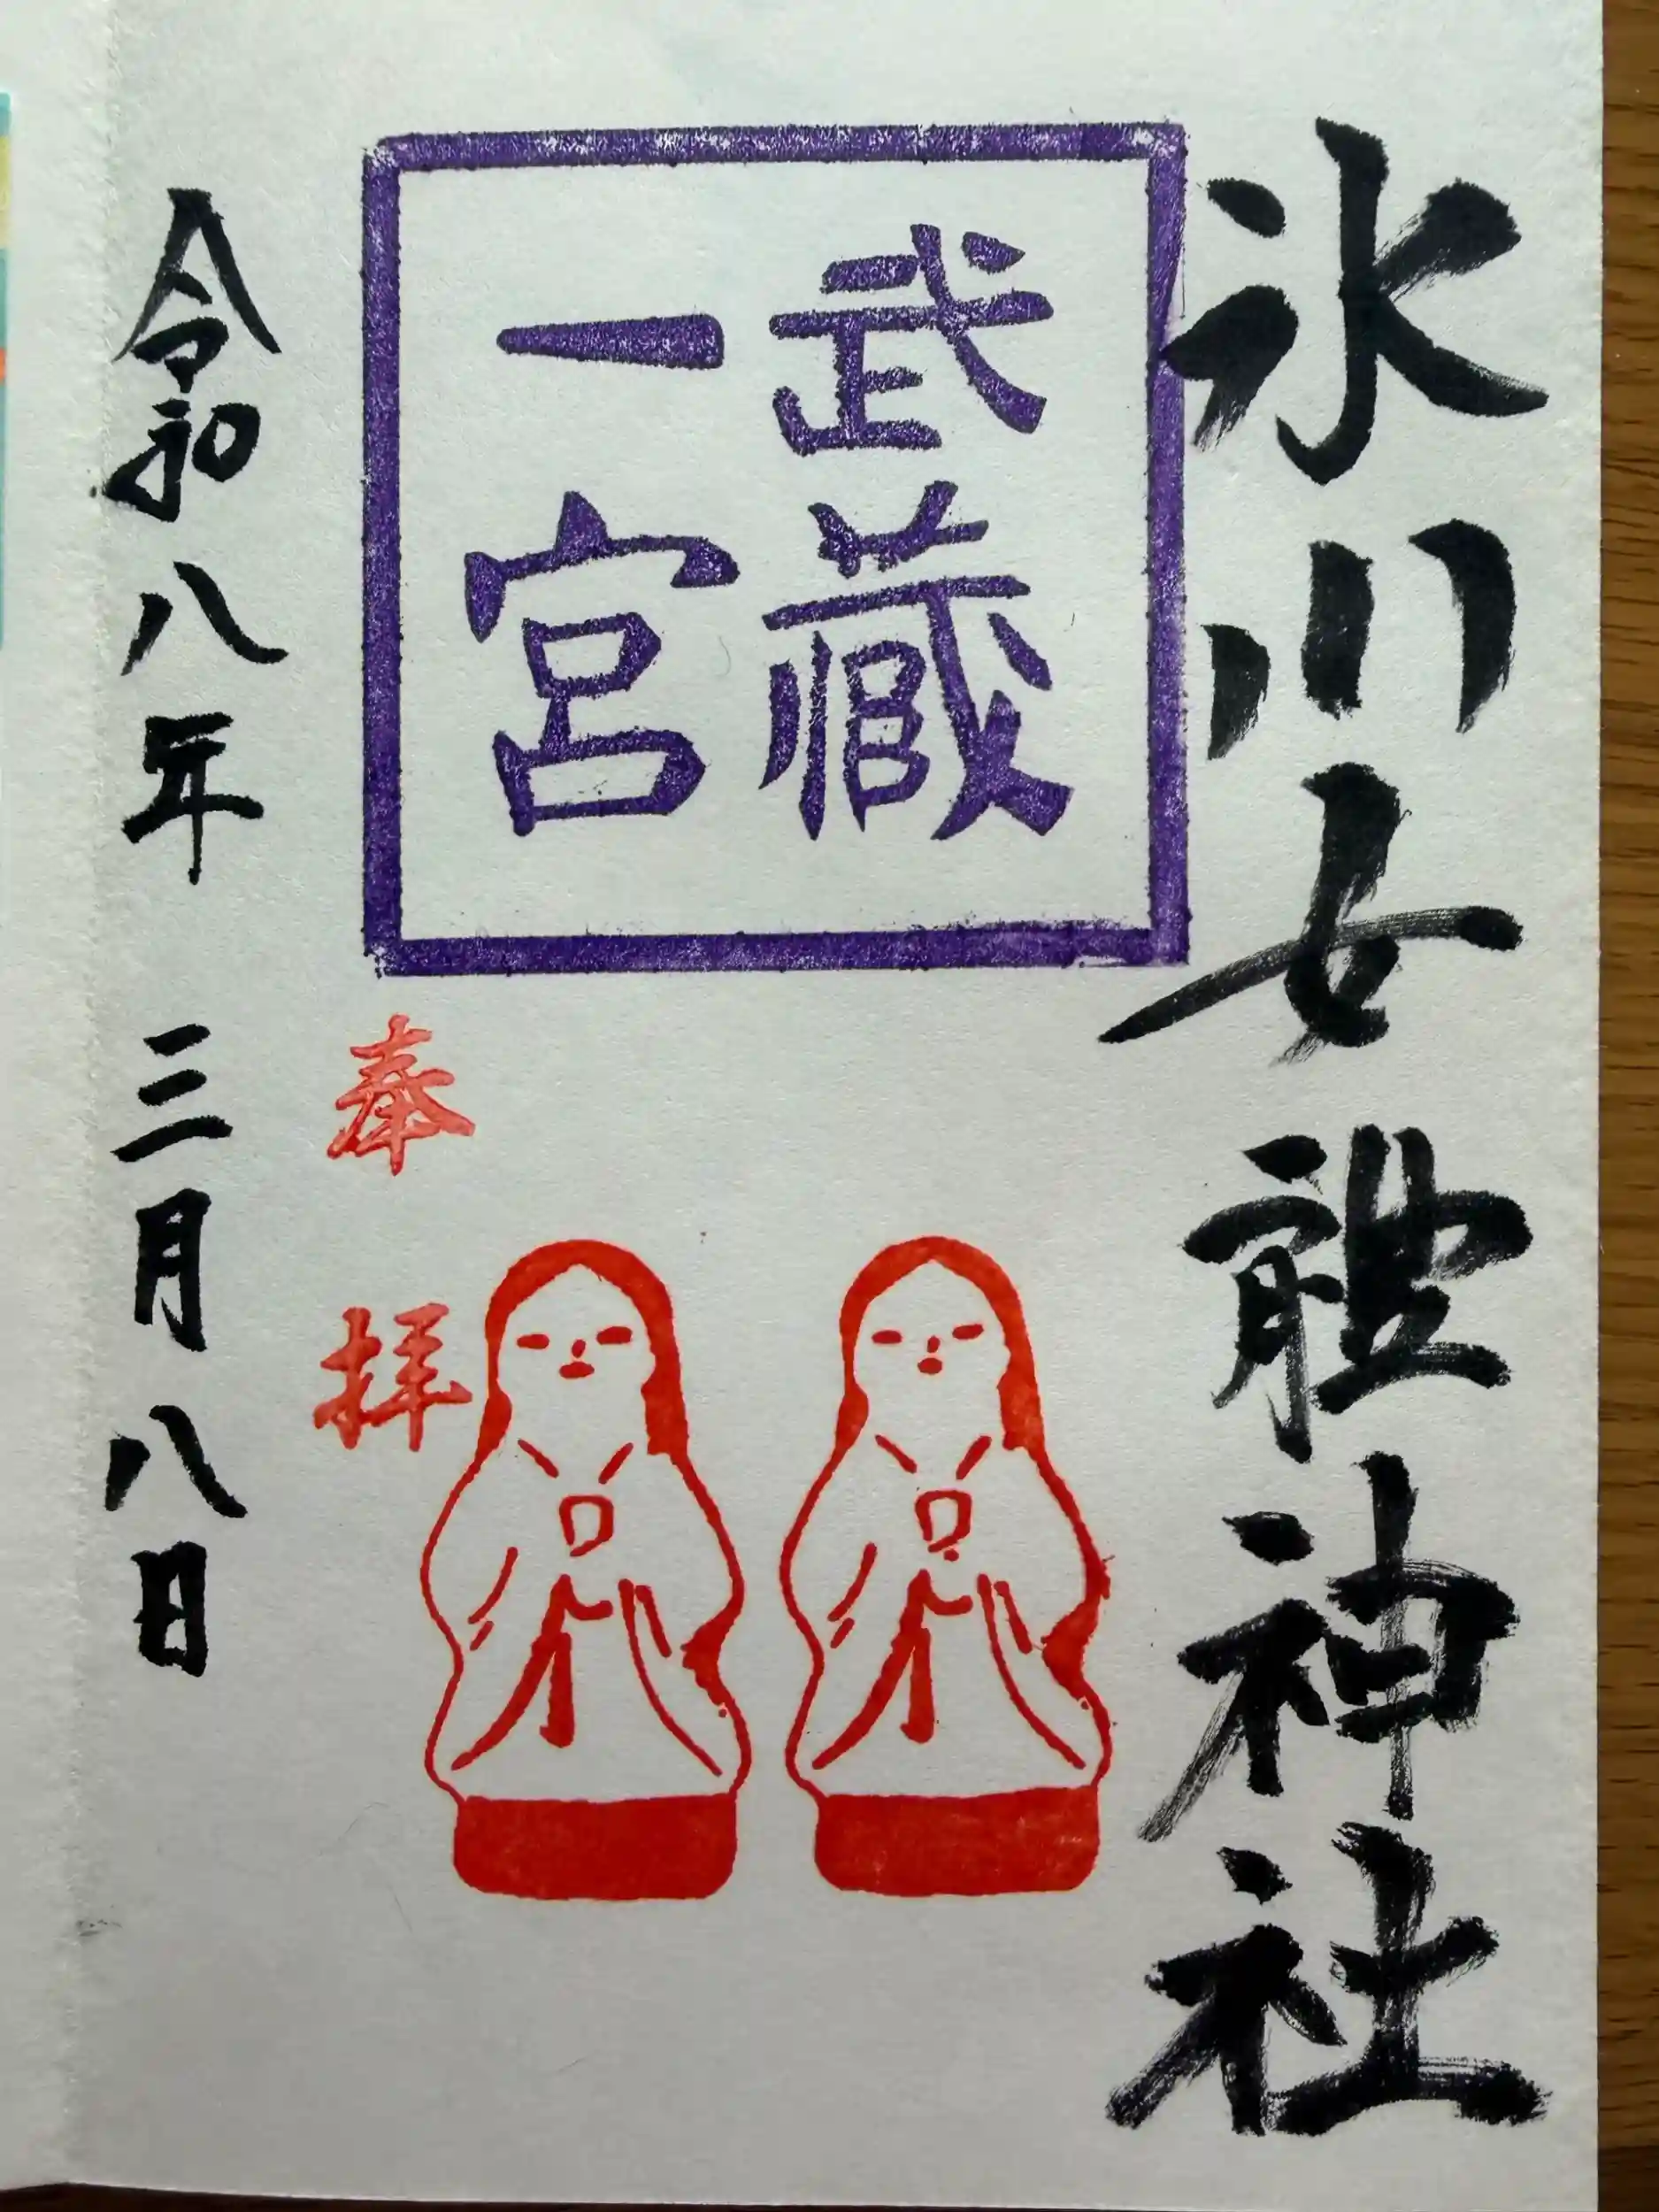 氷川女體神社
武蔵
一宮
奉拝
令和八年三月八日